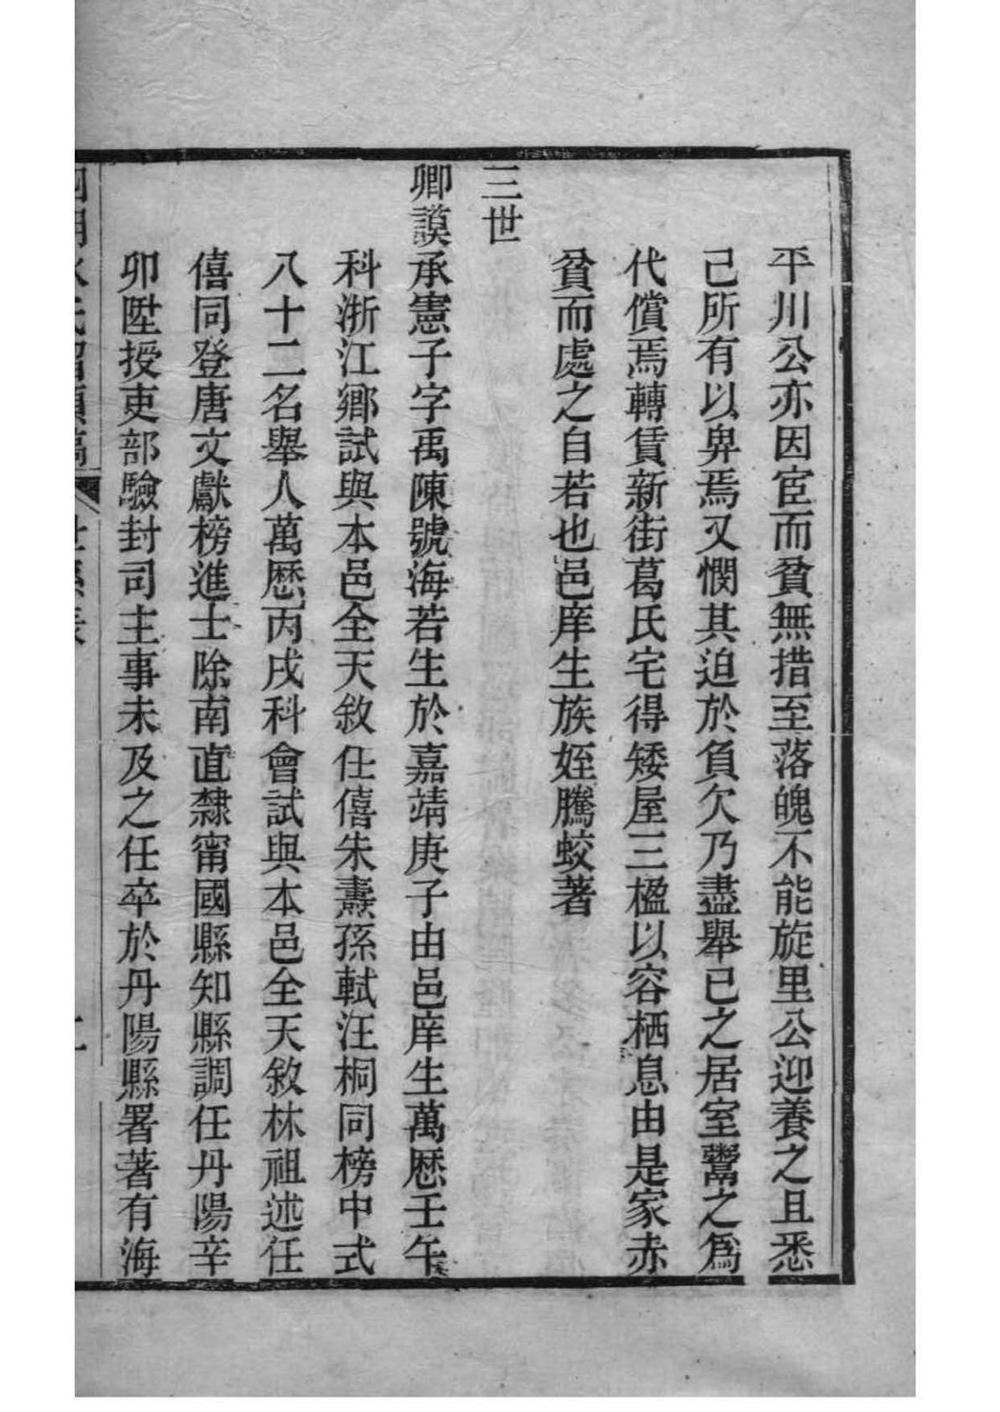 平川公亦因宦而貧無措至落魄不能旋里公迎養之且悉
己所有以畀焉又憫其迫於負欠乃盡舉已之居室鬻之爲
代償焉轉賃新街葛氏宅得矮屋三楹以容栖息由是家赤
貧而處之自若也邑庠生族姪騰蛟著
三世
卿謨承憲子字禹陳號海若生於嘉靖庚子由邑庠生萬歷壬午
科浙江鄉試與本邑全天敘任僖朱燾孫軾汪桐同榜中式
八十二名舉人萬歷丙戌科會試與本邑全天敘林祖述任
僖同登唐文獻榜進士除南直隸甯國縣知縣調任丹陽辛
卯陞授吏部驗封司主事未及之任卒於丹陽縣署著有海